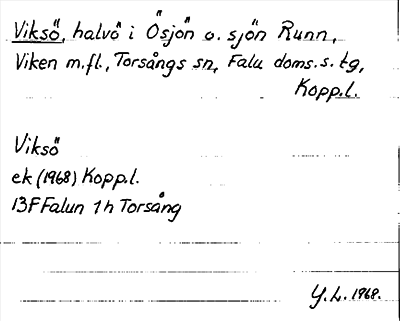 Viksö, halvö i Ösjön o. sjön Runn,
Viken m.fl., Torsångs sn, Falu doms.s. tg,
Kopp.l.
Viksö
ek (1968) Kopp.l.
13F Falun 1h Torsång
Y.L. 1968.